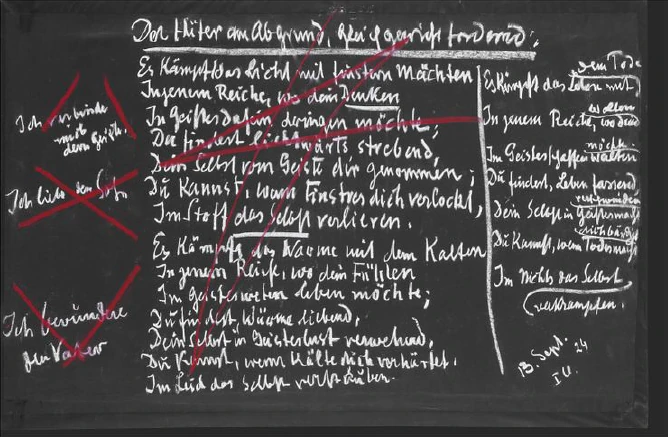 Der Hüter am Abgrund, gleichgewicht fordernd:
Es kämpft das Licht mit finstern Mächten
In jenem Reiche, wo dein Denken
In Geistesdasein dringen möchte;
Du findest, lichtwärts strebend,
Dein Selbst vom Geiste dir genommen;
Du kannst, wenn Finstres dich verlockt,
Im Stoff das Selbst verlieren.
Es kämpft das Warme mit dem Kalten
In jenem Reich, wo dein Fühlen
Im Geistesweben leben möchte;
Du findest, Wärme liebend,
Dein Selbst in Geisteslust verwehend,
Du kannst, wenn Kälte dich verhärtet,
Im Leid das Selbst verstäuben.
dem Tode
Es kämpft das Leben mit
In jenem Reiche, wo dein
Im Geistesschaffen walten
möchte
Du findest, Leben fassend
Dein Selbst in Geistesmacht
Du kannst, wenn Todesmacht
Im Nichts das Selbst
verkrampfen.
13. Sept. 24
Ich verbinde
mich
dem Geist.
Ich liebe den Sohn
Ich bewundere
den Vater